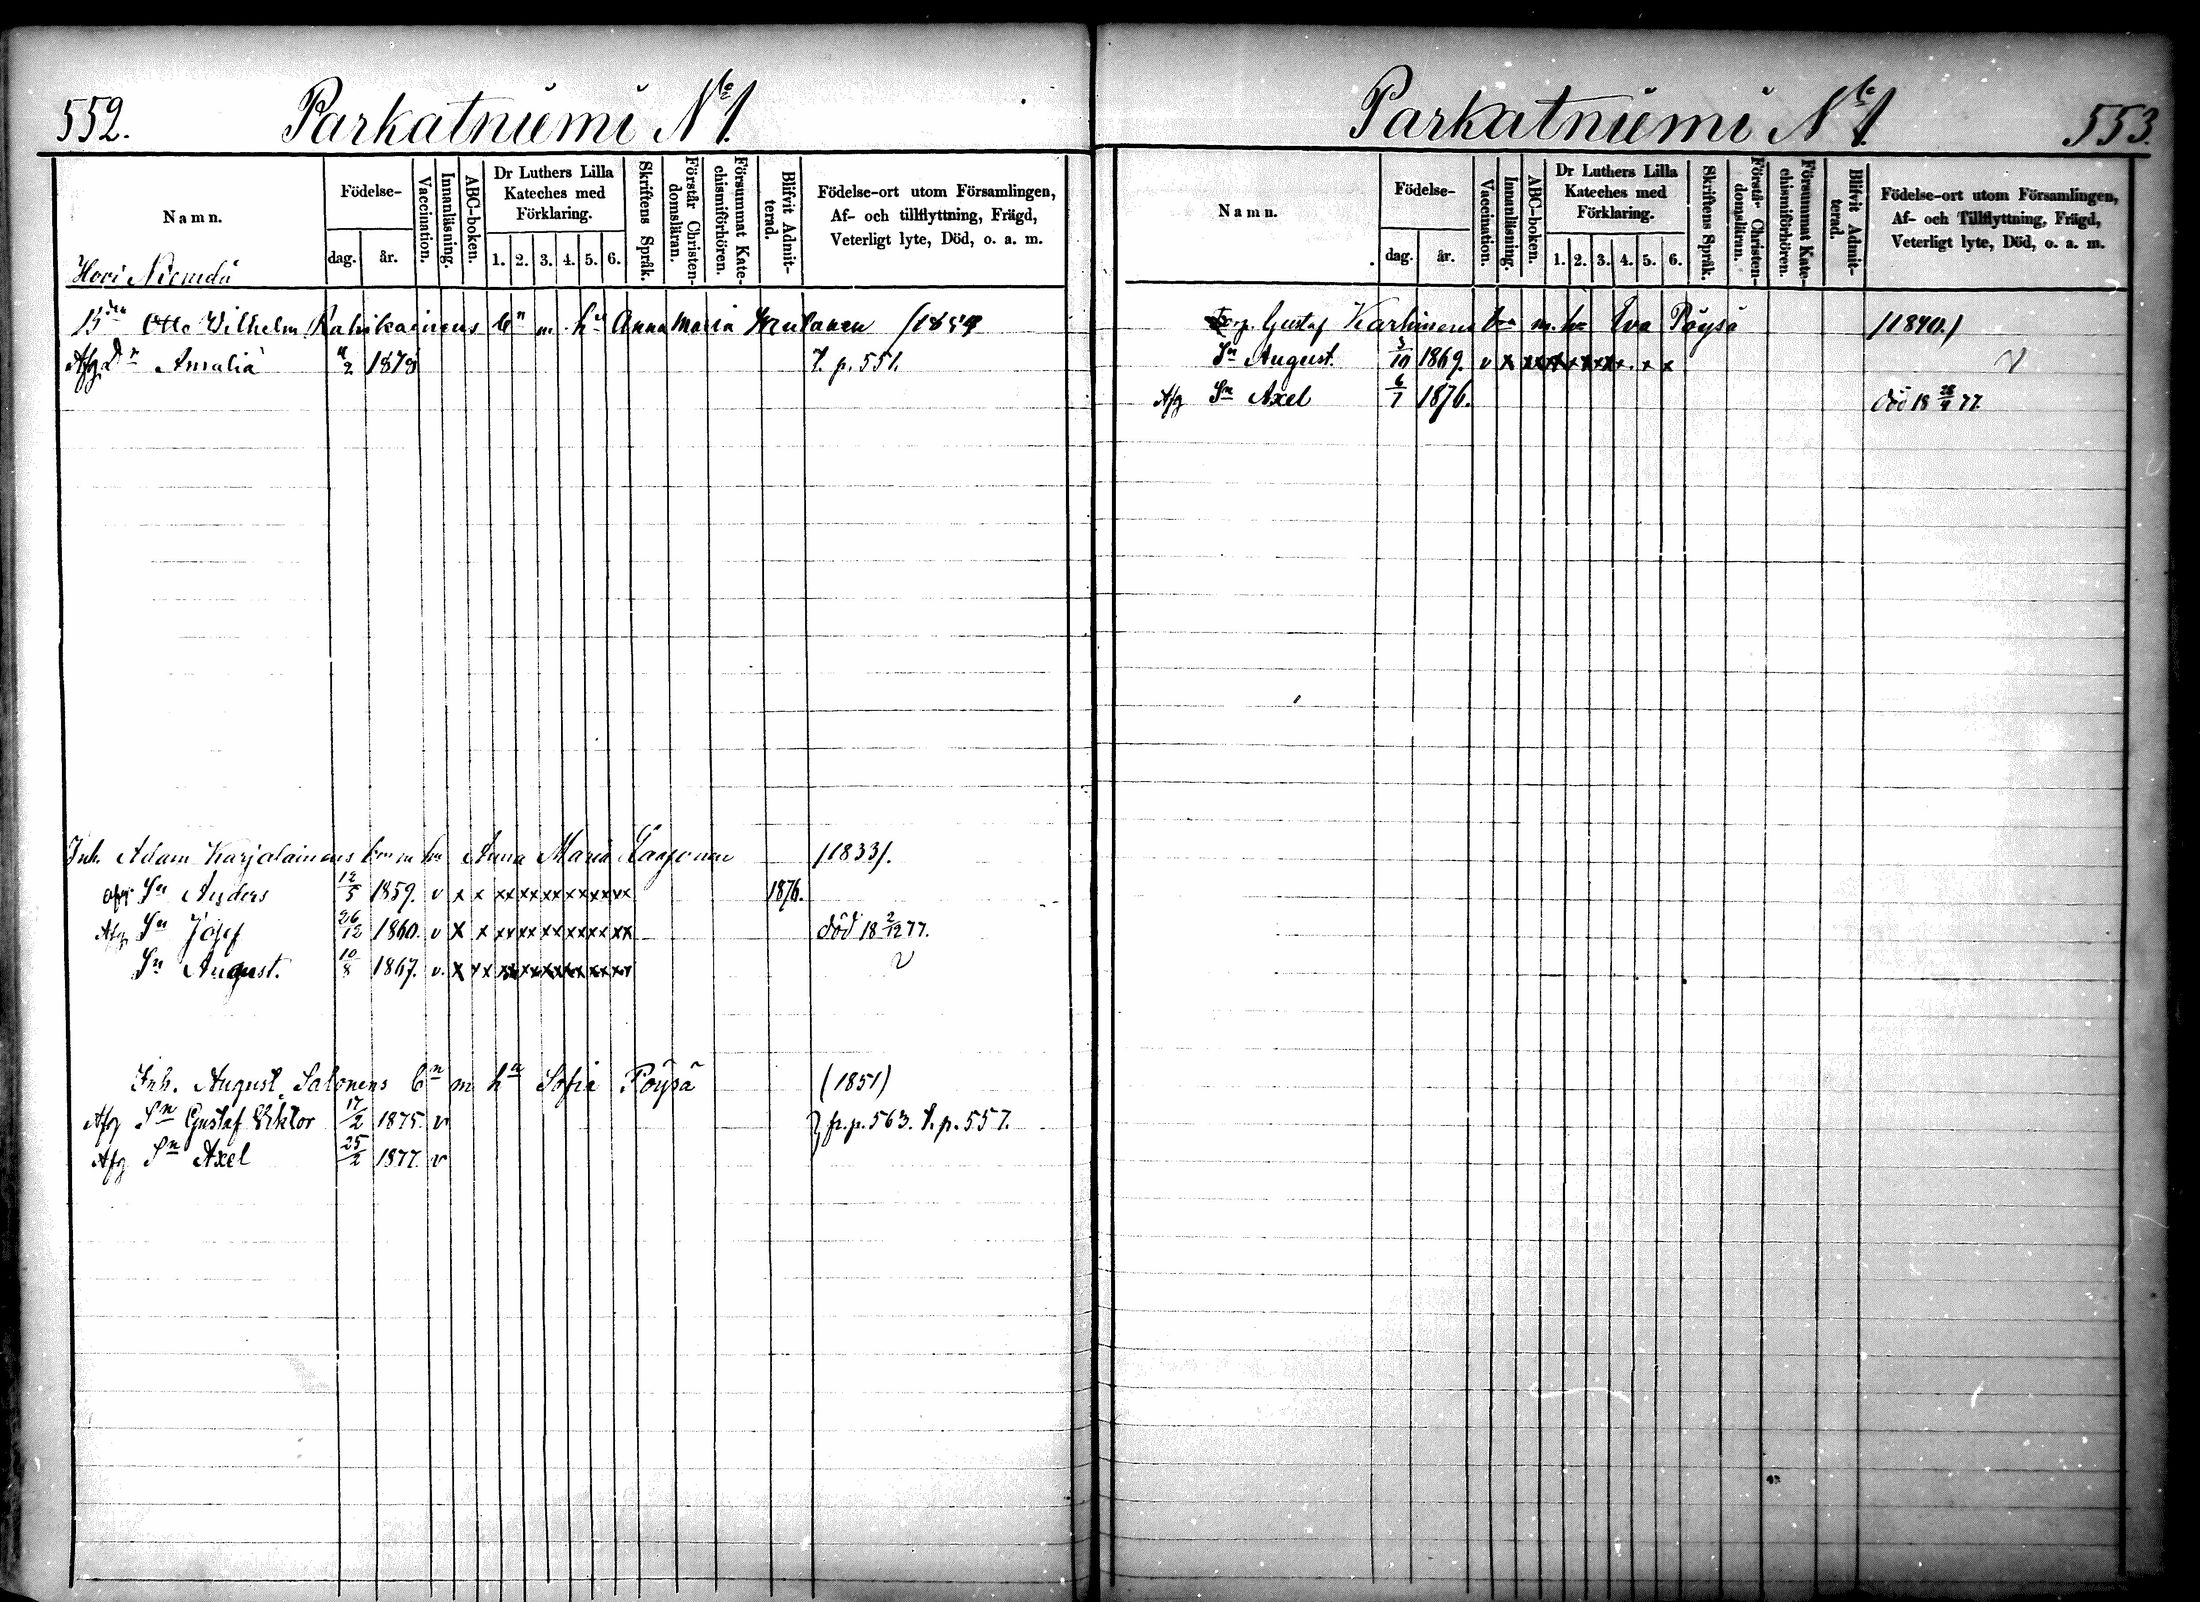 552. Parkatniemi No 1.
Namn.
Födelse-
dag. år.
Vaccination.
Innanläsning.
ABC-boken.
Dr Luthers Lilla Kateches med Förklaring.
1. 2. 3. 4. 5. 6.
Skriftens Språk.
Förstår Christendomsläran.
Försummat Katechismiförhören.
Blifvit Admitterad.
Födelse-ort utom Församlingen, Af- och tillflyttning, Frägd, Veterligt lyte, Död, o. a. m.
Otto Wilhelm bn m. hu Anna Maria
Afg Dn Amalia 2 1878 t. p. 551.
Inh. Adam Karjalainens bn m hu Anna Maria /1833/.
afg Sn Anders 12/5 1859. v x x xx xx xx xx xx xx 1876.
Afg Sn Josef 26/12 1860. v x x xx xx xx xx xx xx död 18 2/12 77.
Sn August. 10/8 1867. v. x v x xx xx xx xx xx xx v
Inh. August Salonens bn m hu Sofia Pöysä (1851)
Afg Sn Gustaf Viktor 17/2 1875. v } fr. p. 563. t. p. 557.
Afg Sn Axel 25/2 1877. v
Parkatniemi No 1. 553.
Namn.
Födelse-
dag. år.
Vaccination.
Innanläsning.
ABC-boken.
Dr Luthers Lilla Kateches med Förklaring.
1. 2. 3. 4. 5. 6.
Skriftens Språk.
Förstår Christendomsläran.
Försummat Katechismiförhören.
Blifvit Admitterad.
Födelse-ort utom Församlingen, Af- och Tillflyttning, Frägd, Veterligt lyte, Död, o. a. m.
Torp. Gustaf Karhinens bn m. hu Eva Pöysä /1840./
Sn August. 3/10 1869. v x xx xx xx xx xx x x v
Afg Sn Axel 6/7 1876. död 18 28/9 77.